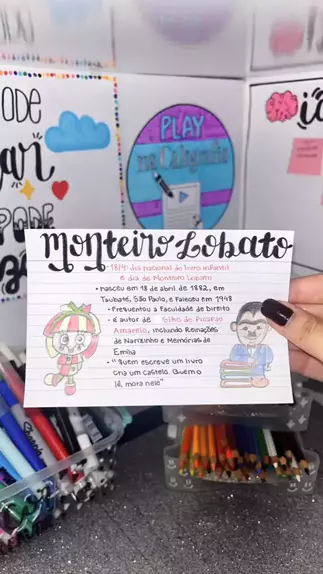 PLAY
na Caligrafia
Monteiro Lobato
- 18/4: dia nacional do livro infantil
e dia de Monteiro Lobato
• nasceu em 18 de abril de 1882, em
Taubaté, São Paulo, e faleceu em 1948
• Frequentou a Faculdade de direito
• é autor de Sítio do Picapau
Amarelo, incluindo Reinações
de Narizinho e Memórias de
Emília
• "Quem escreve um livro
cria um castelo. Quem o
lê, mora nele"